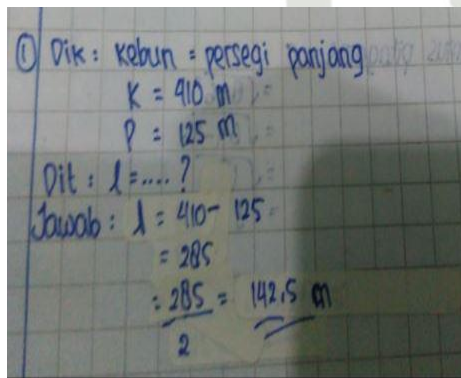 ① Dik : kebun = persegi panjang
K = 410 m
P = 125 m
Dit : l = .... ?
Jawab : l = 410 - 125
= 285
= 285/2 = 142,5 m